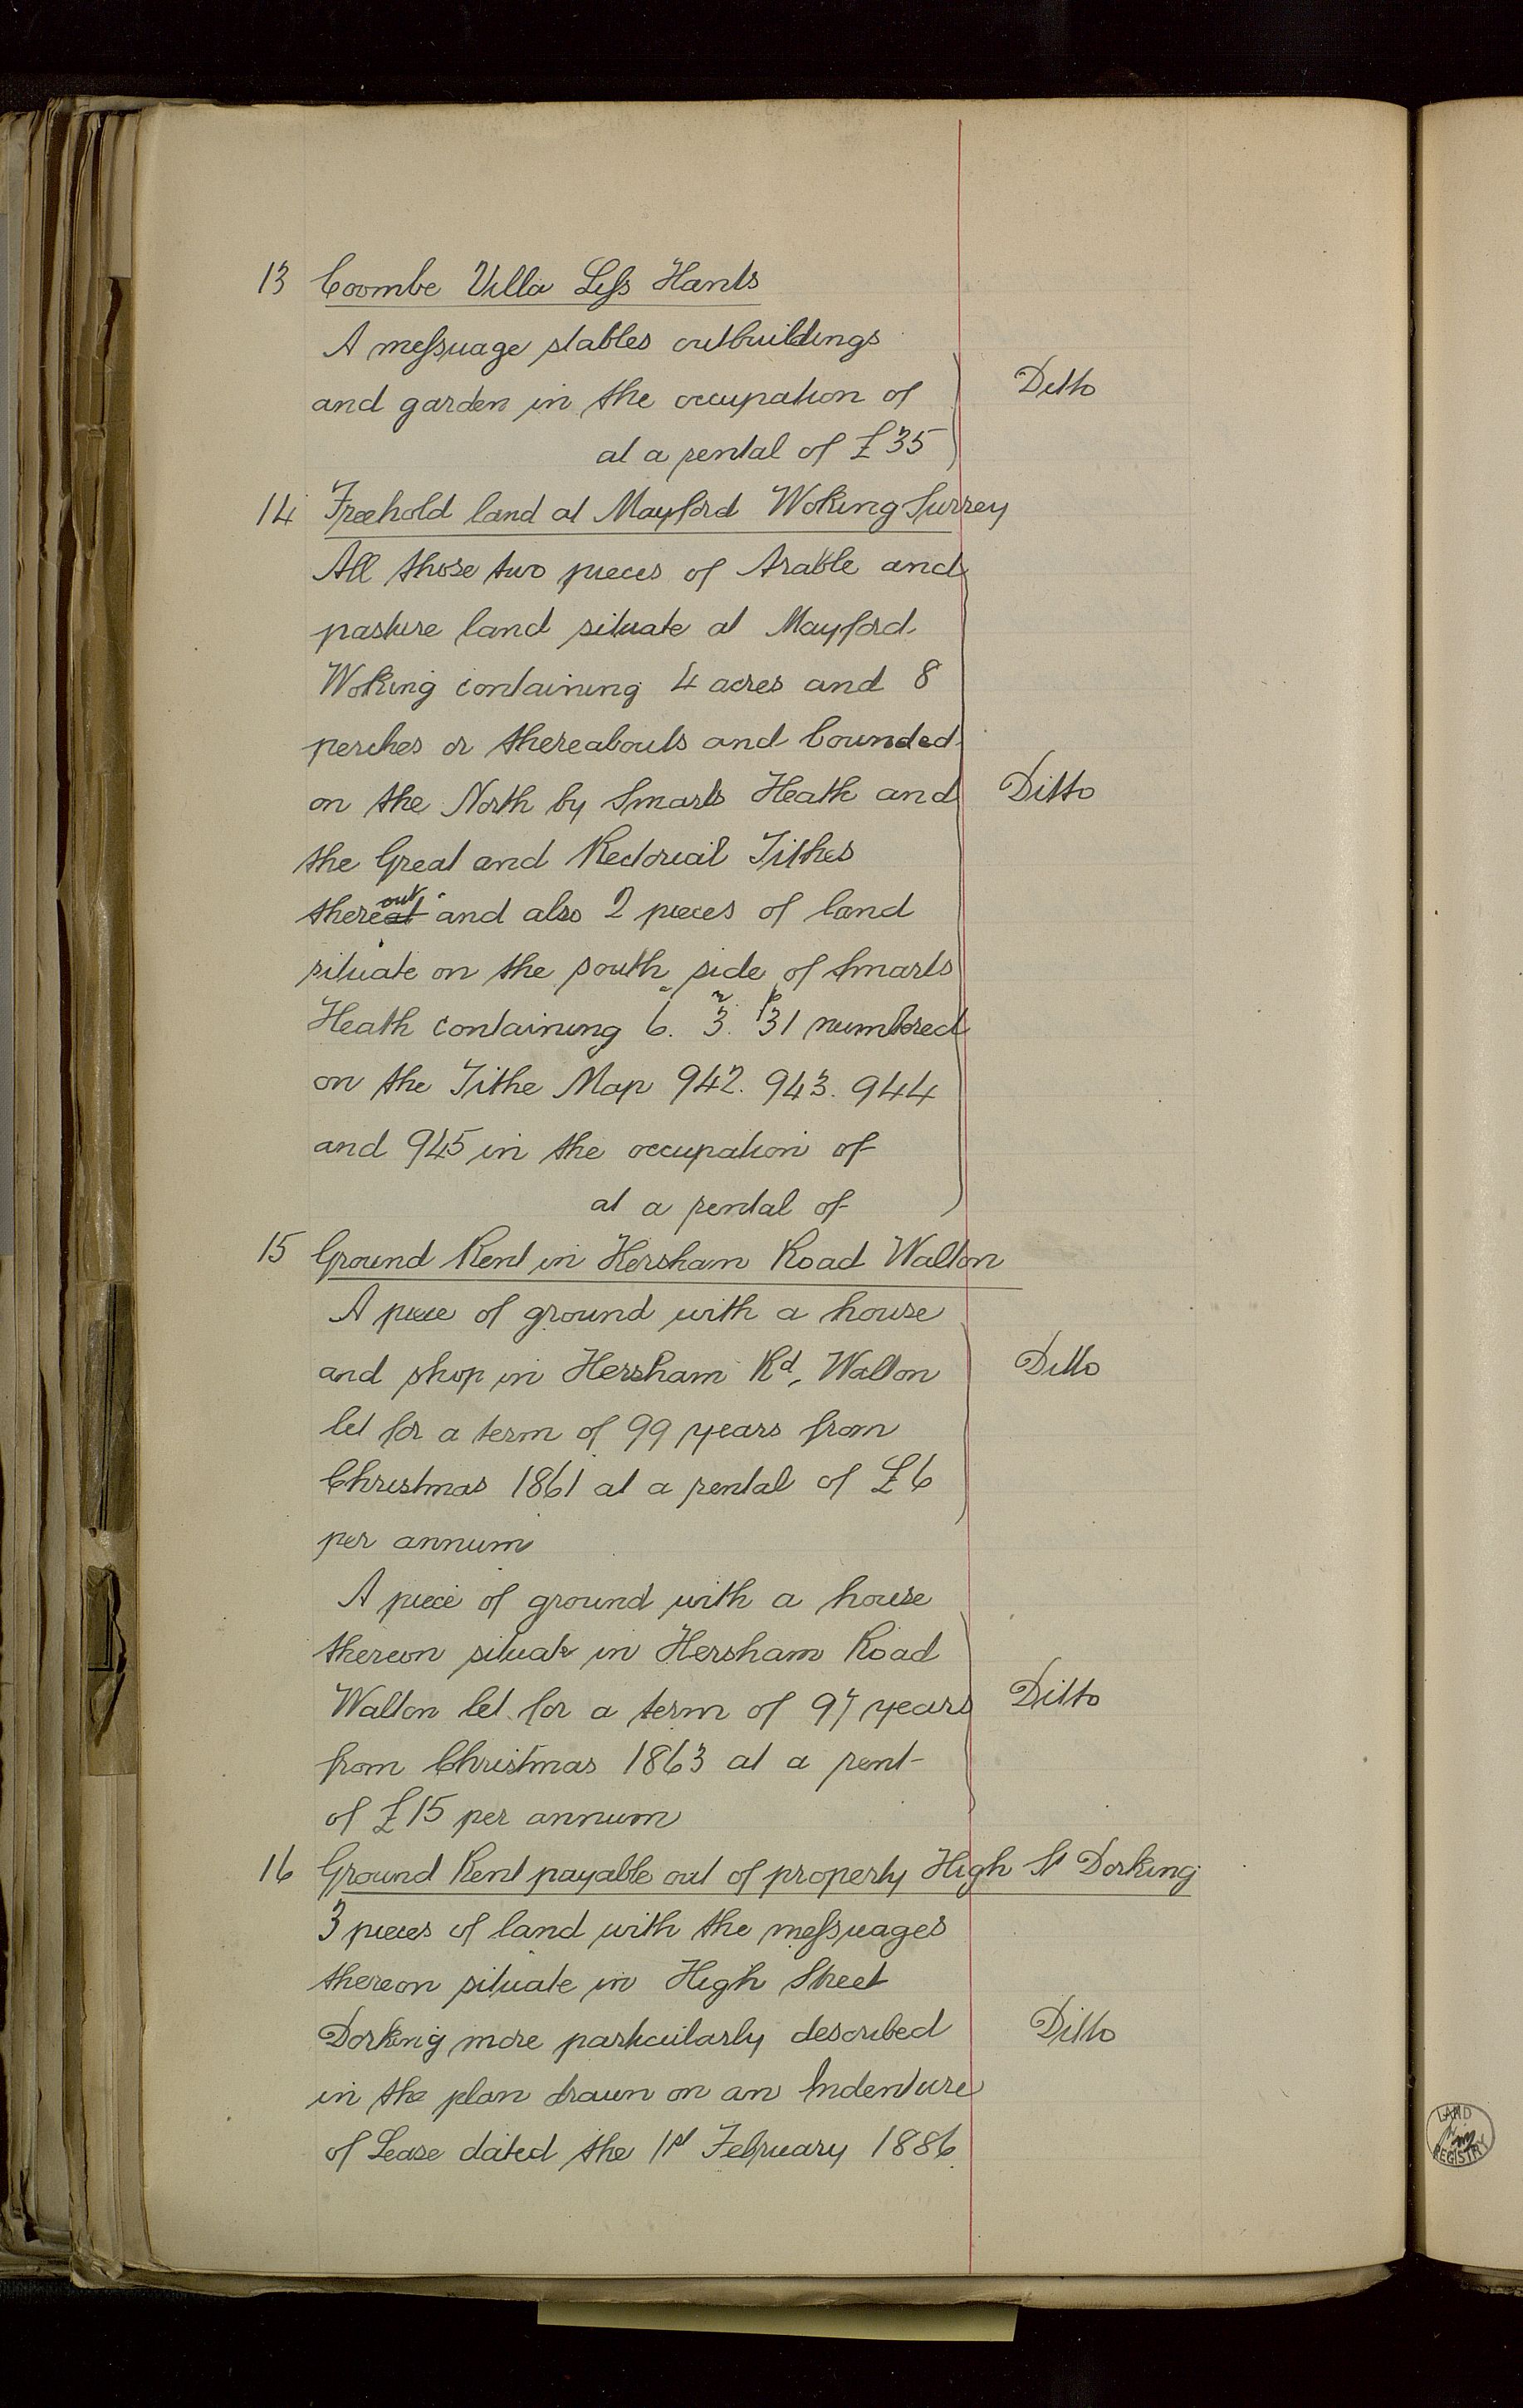 13 Coombe Villa Liss Hants
A messuage stables outbuildings
and garden in the occupation of
Ditto
at a rental of £35
14 Freehold land at Mayford Woking Surrey
All those two pieces of Arable and
pasture land situate at Mayford
Woking containing 4 acres and 8
perches or thereabouts and bounded
on the North by Smarts Heath and
Ditto
the Great and Rectorial Tithes
thereat out and also 2 pieces of land
situate on the south side of Smarts
Heath containing 6.a 3.r 31p numbered
on the Tithe Map 942. 943. 944
and 945 in the occupation of
at a rental of
15 Ground Rent in Hersham Road Walton
A piece of ground with a house
and shop in Hersham Rd, Walton
Ditto
let for a term of 99 years from
Christmas 1861 at a rental of £6
per annum
A piece of ground with a house
thereon situate in Hersham Road
Walton let for a term of 97 years
Ditto
from Christmas 1863 at a rent
of £15 per annum
16 Ground Rent payable out of property High St Dorking
3 pieces of land with the messuages
thereon situate in High Street
Dorking more particularly described
Ditto
in the plan drawn on an Indenture
of Lease dated the 1st February 1886
LAND
REGISTRY